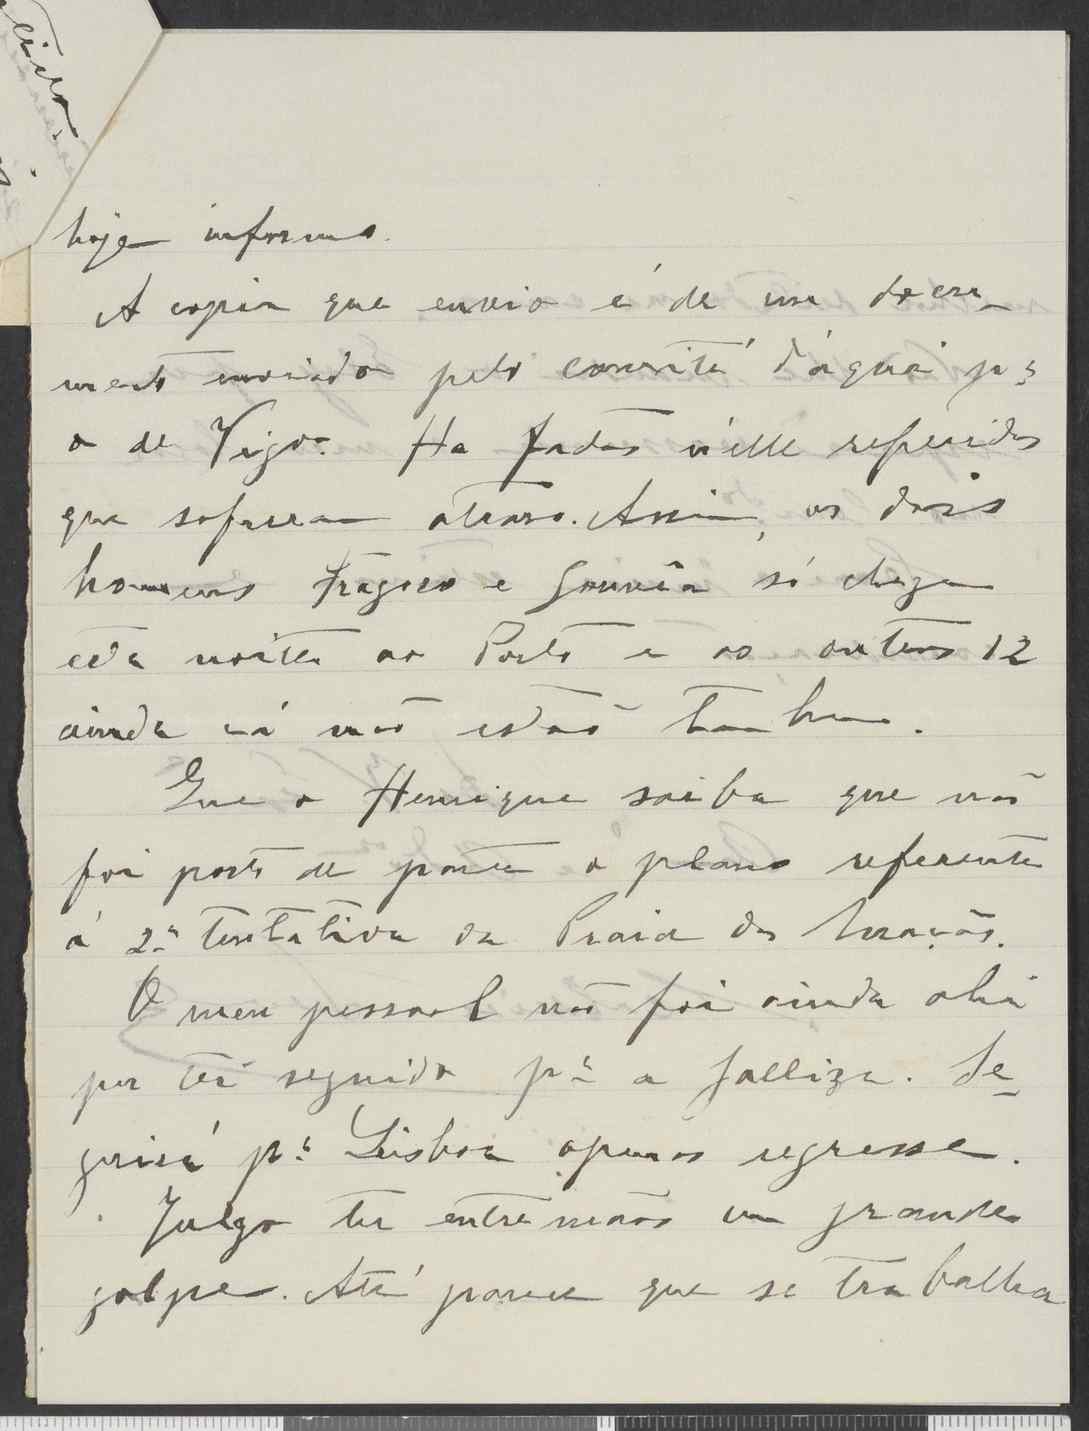 hoje informo.
A copia que envio é de um docu-
mento enviado pelo comité d'aqui pª
o de Vigo. Ha factos n'elle referidos
que sofreram atraso. Assim, os dois
homens Fragoso e Gouvêa só chegam
esta noite ao Porto e os outros 12
ainda cá não estão tambem.
Que o Henrique saiba que não
foi posto de parte o plano referente
á 2ª tentativa da Praia das Maçãs.
O meu pessoal não foi ainda ahi
por ter seguido pª a Galliza. Se-
guirá pª Lisboa apenas regresse.
Julgo ter entre mãos um grande
golpe. Até parece que se trabalha